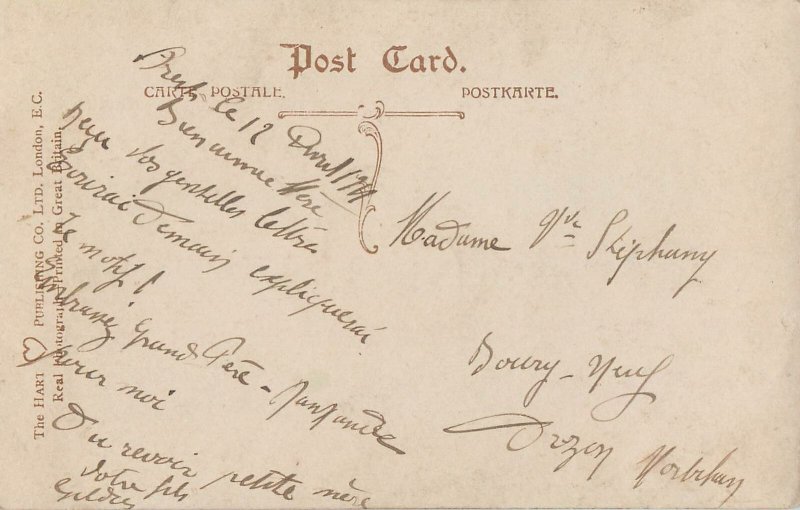 Post Card.
CARTE POSTALE.
POSTKARTE.
The HART PUBLISHING CO. LTD. London, E.C.
Real Photograph Printed in Great Britain.
Brest le 12 Avril
Bien aimée Mère
Reçu vos gentilles lettres
Ecrirai demain expliquerai
le motif!
Embrassez Grand Père
pour moi
Au revoir petite mère
Votre fils
Madame Vve Stéphany
Bourg-Neuf
Morbihan